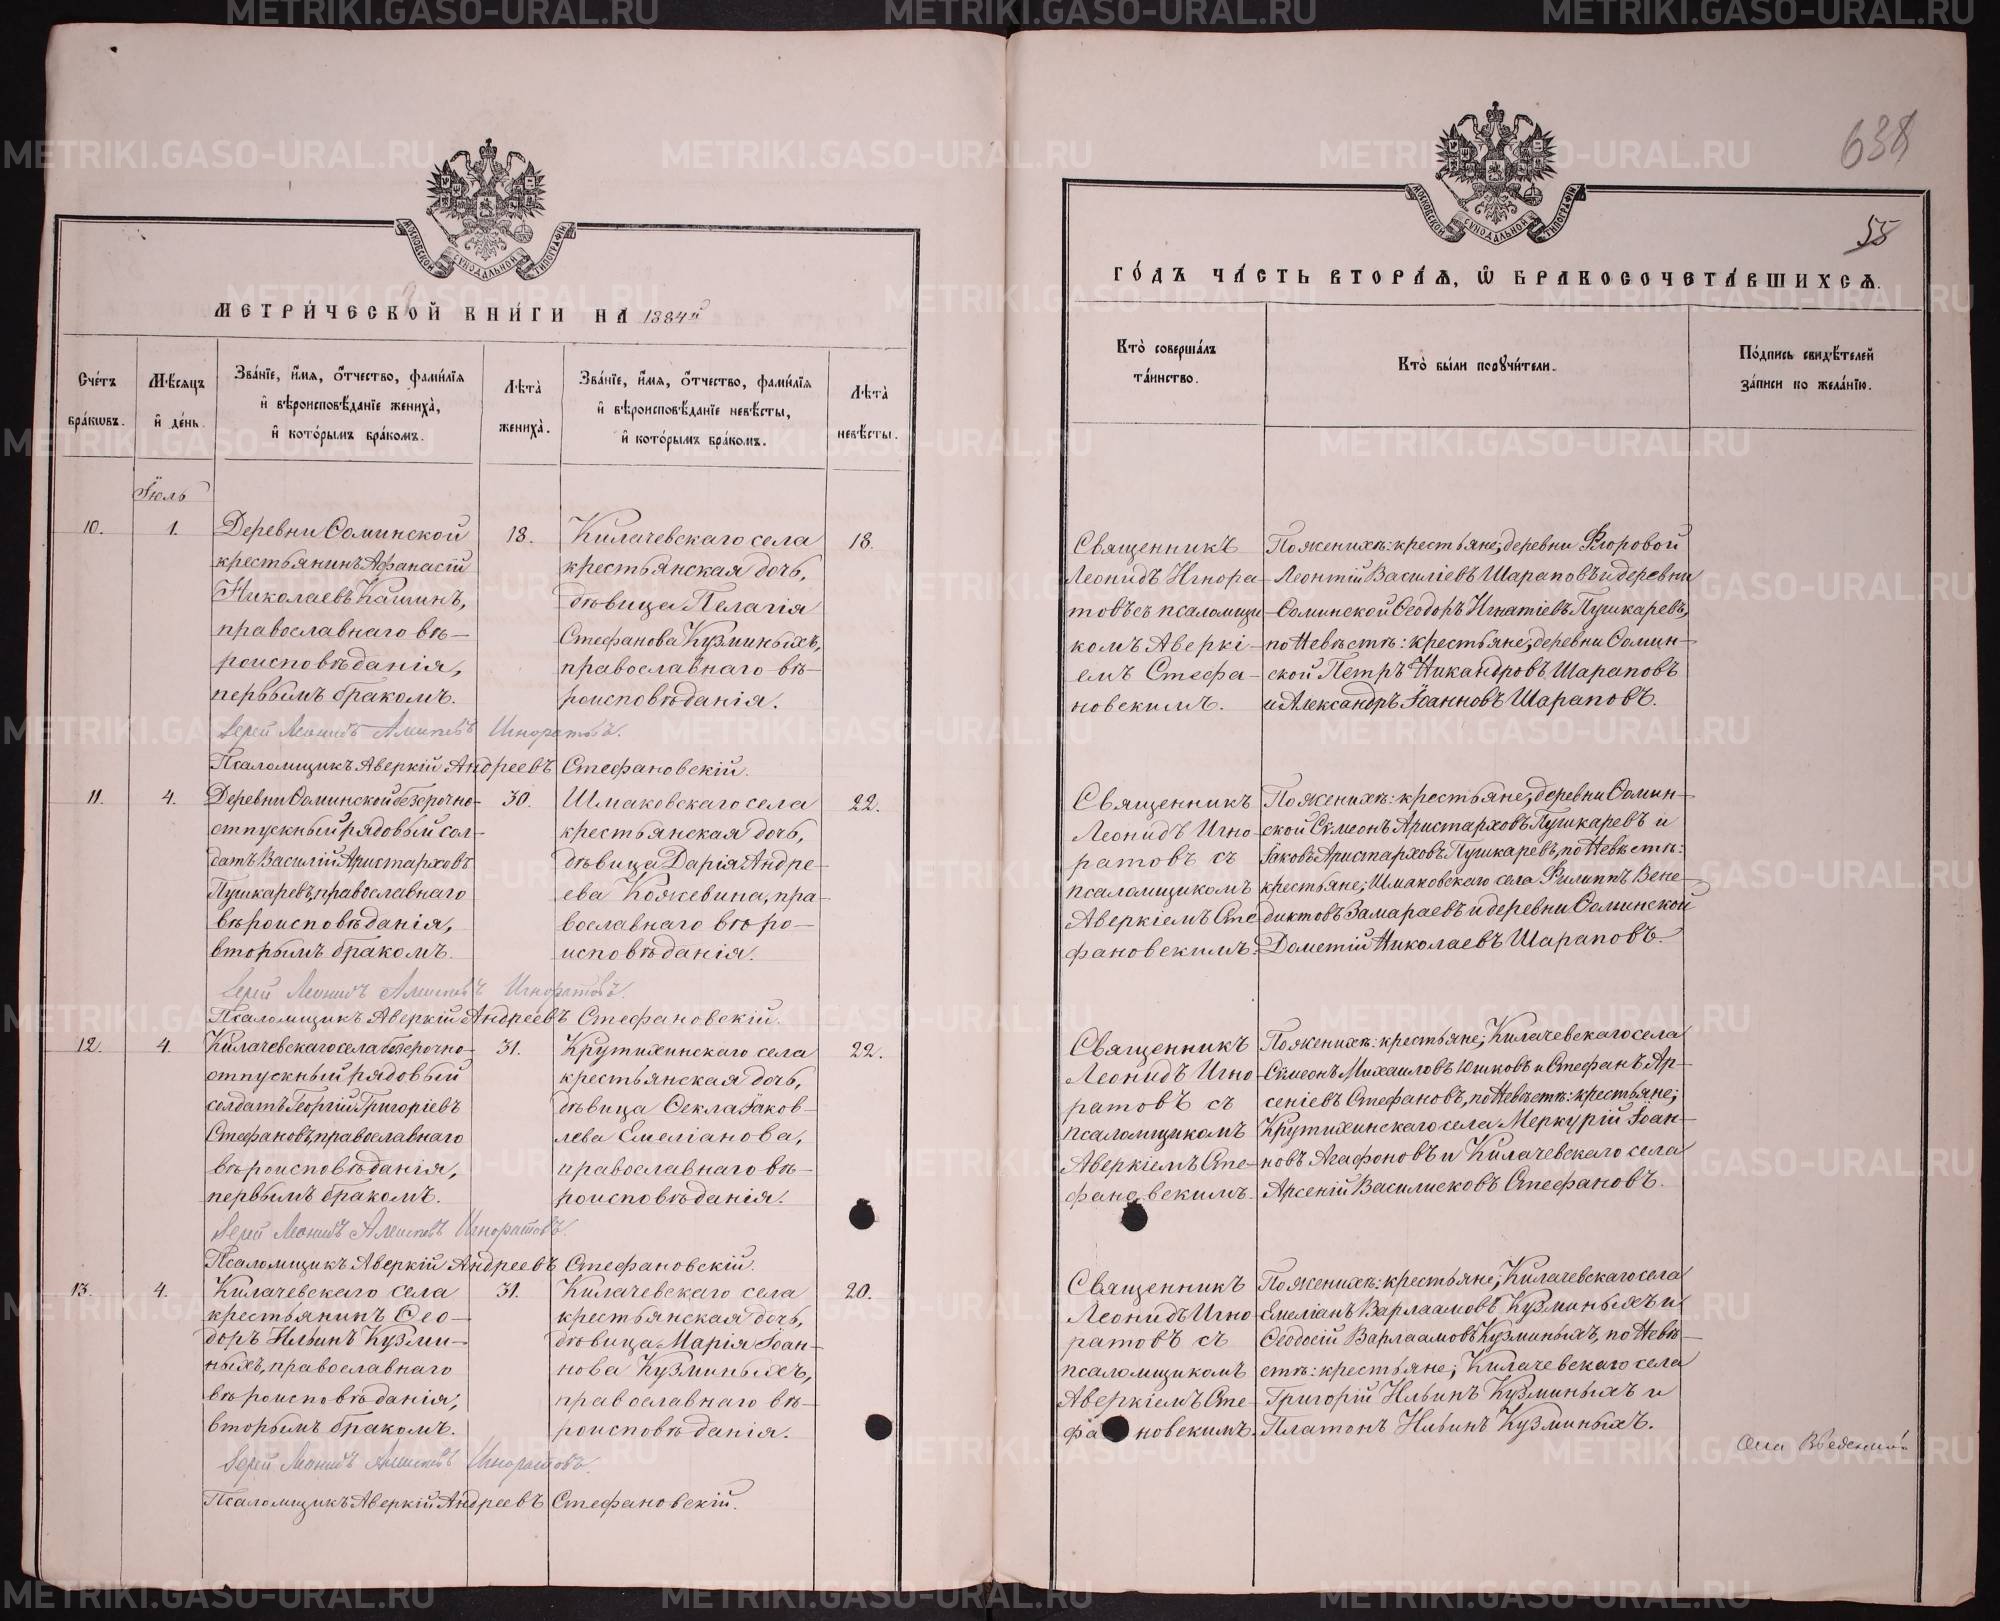 638
55
МОСКОВСКОЙ СѴНОДАЛЬНОЙ ТИПОГРАФІИ
МЕТРИ́ЧЕСКОЙ КНИ́ГИ НА 1884й
Сче́тъ бра́кѡвъ.
Мѣ́сяцъ и҆ де́нь.
Зва́нїе, и҆́мя, ѻ҆́тчество, фами́лїя
и҆ вѣроисповѣ́данїе жениха̀,
и҆ кото́рымъ бра́комъ.
Лѣта̀ жениха̀.
Зва́нїе, и҆́мя, ѻ҆́тчество, фами́лїя
и҆ вѣроисповѣ́данїе невѣ́сты,
и҆ кото́рымъ бра́комъ.
Лѣта̀ невѣ́сты.
Іюль
10.
1.
Деревни Соминской
крестьянинъ Афанасій
Николаевъ Кашинъ,
православнаго вѣ-
роисповѣданія,
первымъ бракомъ.
18.
Килачевскаго села
крестьянская дочь,
дѣвица Пелагія
Стефанова Кузминыхъ,
православнаго вѣ-
роисповѣданія.
18.
Іерей Леонидъ Алексѣевъ Игноратовъ.
Псаломщикъ Аверкій Андреевъ Стефановскій.
11.
4.
Деревни Соминской безсрочно-
отпускный рядовый сол-
датъ Василій Аристарховъ
Пушкаревъ, православнаго
вѣроисповѣданія,
вторымъ бракомъ.
30.
Шмаковскаго села
крестьянская дочь,
дѣвица Дарія Андре-
ева Кожевина, пра-
вославнаго вѣро-
исповѣданія.
22.
Іерей Леонидъ Алексѣевъ Игноратовъ.
Псаломщикъ Аверкій Андреевъ Стефановскій.
12.
4.
Килачевскаго села безсрочно-
отпускный рядовый
солдатъ Георгій Григоріевъ
Стефановъ, православнаго
вѣроисповѣданія,
первымъ бракомъ.
31.
Крутихинскаго села
крестьянская дочь,
дѣвица Ѳекла Іаков-
лева Емеліанова,
православнаго вѣ-
роисповѣданія.
22.
Іерей Леонидъ Алексѣевъ Игноратовъ.
Псаломщикъ Аверкій Андреевъ Стефановскій.
13.
4.
Килачевскаго села
крестьянинъ Ѳео-
доръ Ильинъ Кузми-
ныхъ, православнаго
вѣроисповѣданія,
вторымъ бракомъ.
31.
Килачевскаго села
крестьянская дочь,
дѣвица Марія Іоан-
нова Кузминыхъ,
православнаго вѣ-
роисповѣданія.
20.
Іерей Леонидъ Алексѣевъ Игноратовъ.
Псаломщикъ Аверкій Андреевъ Стефановскій.
МОСКОВСКОЙ СѴНОДАЛЬНОЙ ТИПОГРАФІИ
ГО́ДЪ ЧА́СТЬ ВТОРА́Я, Ѡ҆ БРАКОСОЧЕТА́ВШИХСЯ.
Кто̀ соверша́лъ
та́инство.
Кто̀ бы́ли порꙋчи́тели.
По́дпись свидѣ́телей
за́писи по жела́нїю.
Священникъ
Леонидъ Игнора-
товъ съ псаломщи-
комъ Аверкі-
емъ Стефа-
новскимъ.
По женихѣ: крестьяне, деревни Флоровой
Леонтій Василіевъ Шараповъ и деревни
Соминской Ѳеодоръ Игнатіевъ Пушкаревъ,
по Невѣстѣ: крестьяне, деревни Сомин-
ской Петръ Никандровъ Шараповъ
и Александръ Іоанновъ Шараповъ.
Священникъ
Леонидъ Игно-
ратовъ съ
псаломщикомъ
Аверкіемъ Сте-
фановскимъ.
По женихѣ: крестьяне, деревни Сомин-
ской Сѵмеонъ Аристарховъ Пушкаревъ и
Іаковъ Аристарховъ Пушкаревъ, по Невѣстѣ:
крестьяне, Шмаковскаго села Филиппъ Вене-
диктовъ Замараевъ и деревни Соминской
Дометій Николаевъ Шараповъ.
Священникъ
Леонидъ Игно-
ратовъ съ
псаломщикомъ
Аверкіемъ Сте-
фановскимъ.
По женихѣ: крестьяне, Килачевскаго села
Сѵмеонъ Михаиловъ Юшковъ и Стефанъ Ар-
сеніевъ Стефановъ, по Невѣстѣ: крестьяне;
Крутихинскаго села Меркурій Іоан-
новъ Агафоновъ и Килачевскаго села
Арсеній Василисковъ Стефановъ.
Священникъ
Леонидъ Игно-
ратовъ съ
псаломщикомъ
Аверкіемъ Сте-
фановскимъ.
По женихѣ: крестьяне, Килачевскаго села
Емеліанъ Варлаамовъ Кузминыхъ и
Ѳеодосій Варлаамовъ Кузминыхъ, по Невѣ-
стѣ: крестьяне; Килачевскаго села
Григорій Ильинъ Кузминыхъ и
Платонъ Ильинъ Кузминыхъ.
METRIKI.GASO-URAL.RU